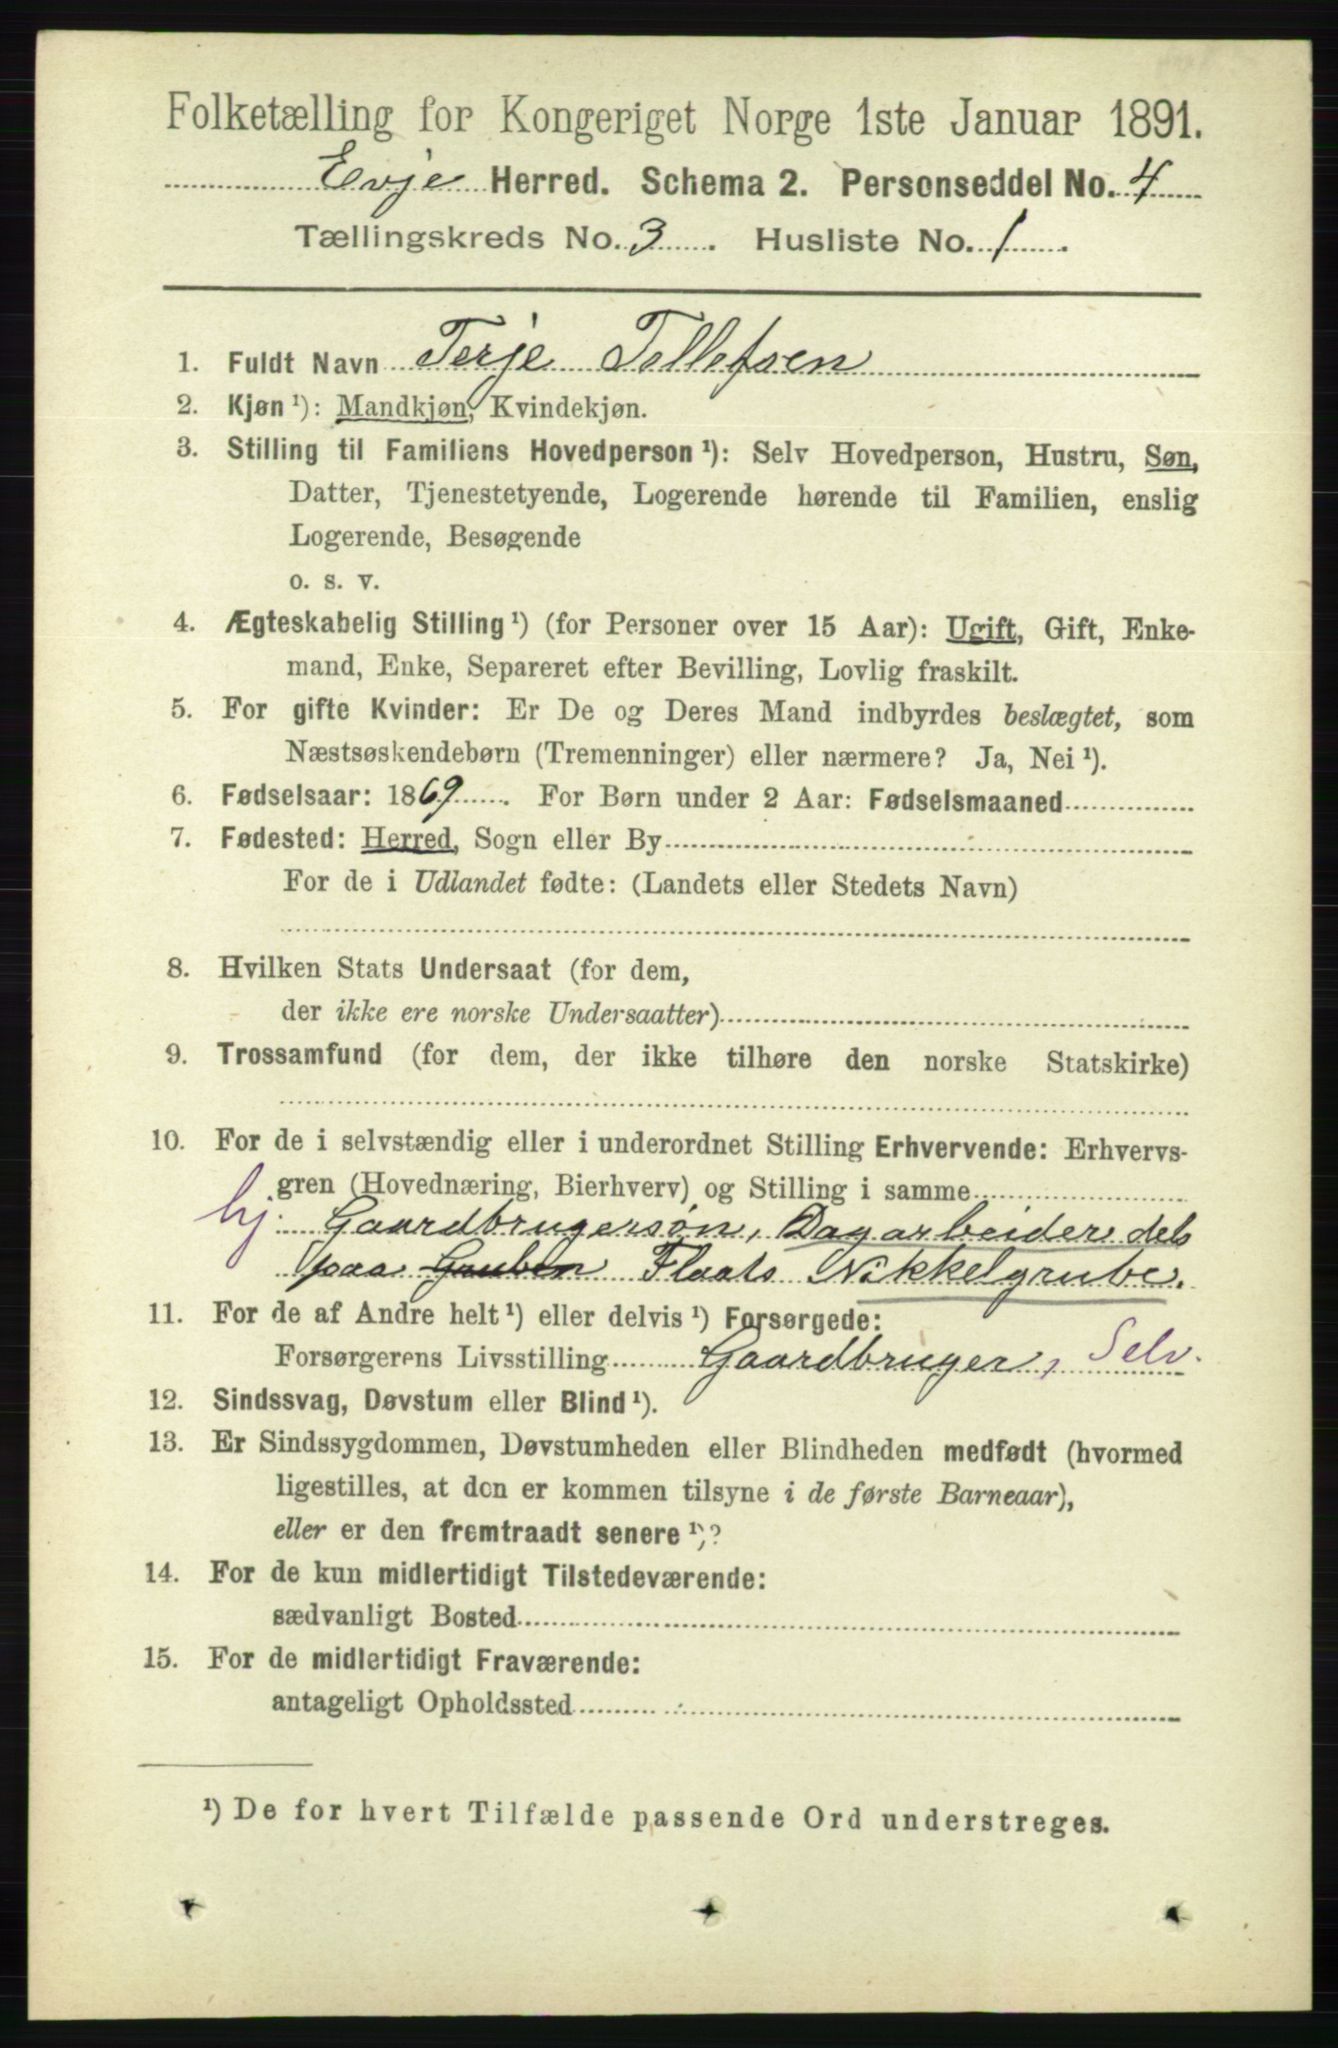 Folketælling for Kongeriget Norge 1ste Januar 1891.
Evje Herred. Schema 2. Personseddel No. 4
Tællingskreds No. 3. Husliste No. 1.
1. Fuldt Navn Terje Tellefsen
2. Kjøn ¹): Mandkjøn, Kvindekjøn.
3. Stilling til Familiens Hovedperson ¹): Selv Hovedperson, Hustru, Søn,
Datter, Tjenestetyende, Logerende hørende til Familien, enslig
Logerende, Besøgende
o. s. v.
4. Ægteskabelig Stilling ¹) (for Personer over 15 Aar): Ugift, Gift, Enke-
mand, Enke, Separeret efter Bevilling, Lovlig fraskilt.
5. For gifte Kvinder: Er De og Deres Mand indbyrdes beslægtet, som
Næstsøskendebørn (Tremenninger) eller nærmere? Ja, Nei ¹).
6. Fødselsaar: 1869. For Børn under 2 Aar: Fødselsmaaned
7. Fødested: Herred, Sogn eller By
For de i Udlandet fødte: (Landets eller Stedets Navn)
8. Hvilken Stats Undersaat (for dem,
der ikke ere norske Undersaatter)
9. Trossamfund (for dem, der ikke tilhøre den norske Statskirke)
10. For de i selvstændig eller i underordnet Stilling Erhvervende: Erhvervs-
gren (Hovednæring, Bierhverv) og Stilling i samme
hj. Gaardbrugersøn, Dagarbeider dels
paa Gruben Flaats Nikkelgrube.
11. For de af Andre helt ¹) eller delvis ¹) Forsørgede:
Forsørgerens Livsstilling Gaardbruger, Selv.
12. Sindssvag, Døvstum eller Blind ¹).
13. Er Sindssygdommen, Døvstumheden eller Blindheden medfødt (hvormed
ligestilles, at den er kommen tilsyne i de første Barneaar),
eller er den fremtraadt senere ¹)?
14. For de kun midlertidigt Tilstedeværende:
sædvanligt Bosted
15. For de midlertidigt Fraværende:
antageligt Opholdssted
¹) De for hvert Tilfælde passende Ord understreges.